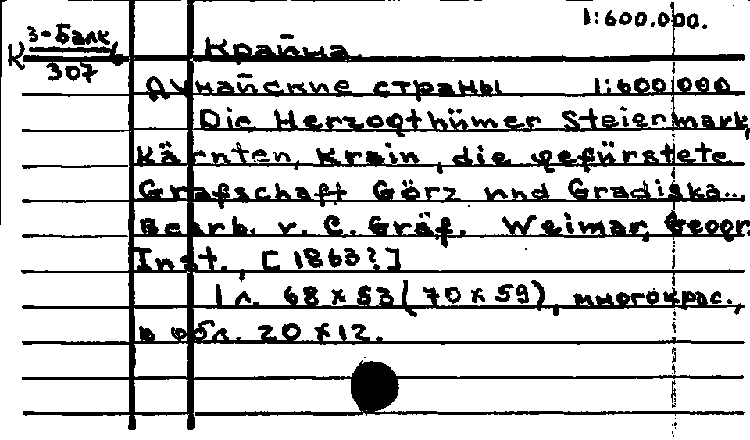 1:600.000.
К 3-Балк/307
Крайна.
Дунайские страны 1:600 000
Die Herzogthümer Steiermark,
Kärnten, Krain, die gefürstete
Grafschaft Görz und Gradiska...
Bearb. v. C. Gräf. Weimar, Geogr.
Inst., [1863?]
1 л. 68 x 53 (70 x 59), многокрас.,
в обл. 20 x 12.